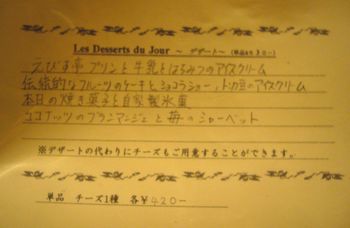 Les Desserts du Jour ～ デザート～ (単品¥630-)
えびす亭プリンと牛乳とはちみつのアイスクリーム
伝統的なフルーツのケーキとショコラショー、トンカ豆のアイスクリーム
本日の焼き菓子と自家製氷菓
ココナッツのブランマンジェと苺のシャーベット
※デザートの代わりにチーズもご用意することができます。
単品 チーズ1種 各¥420-